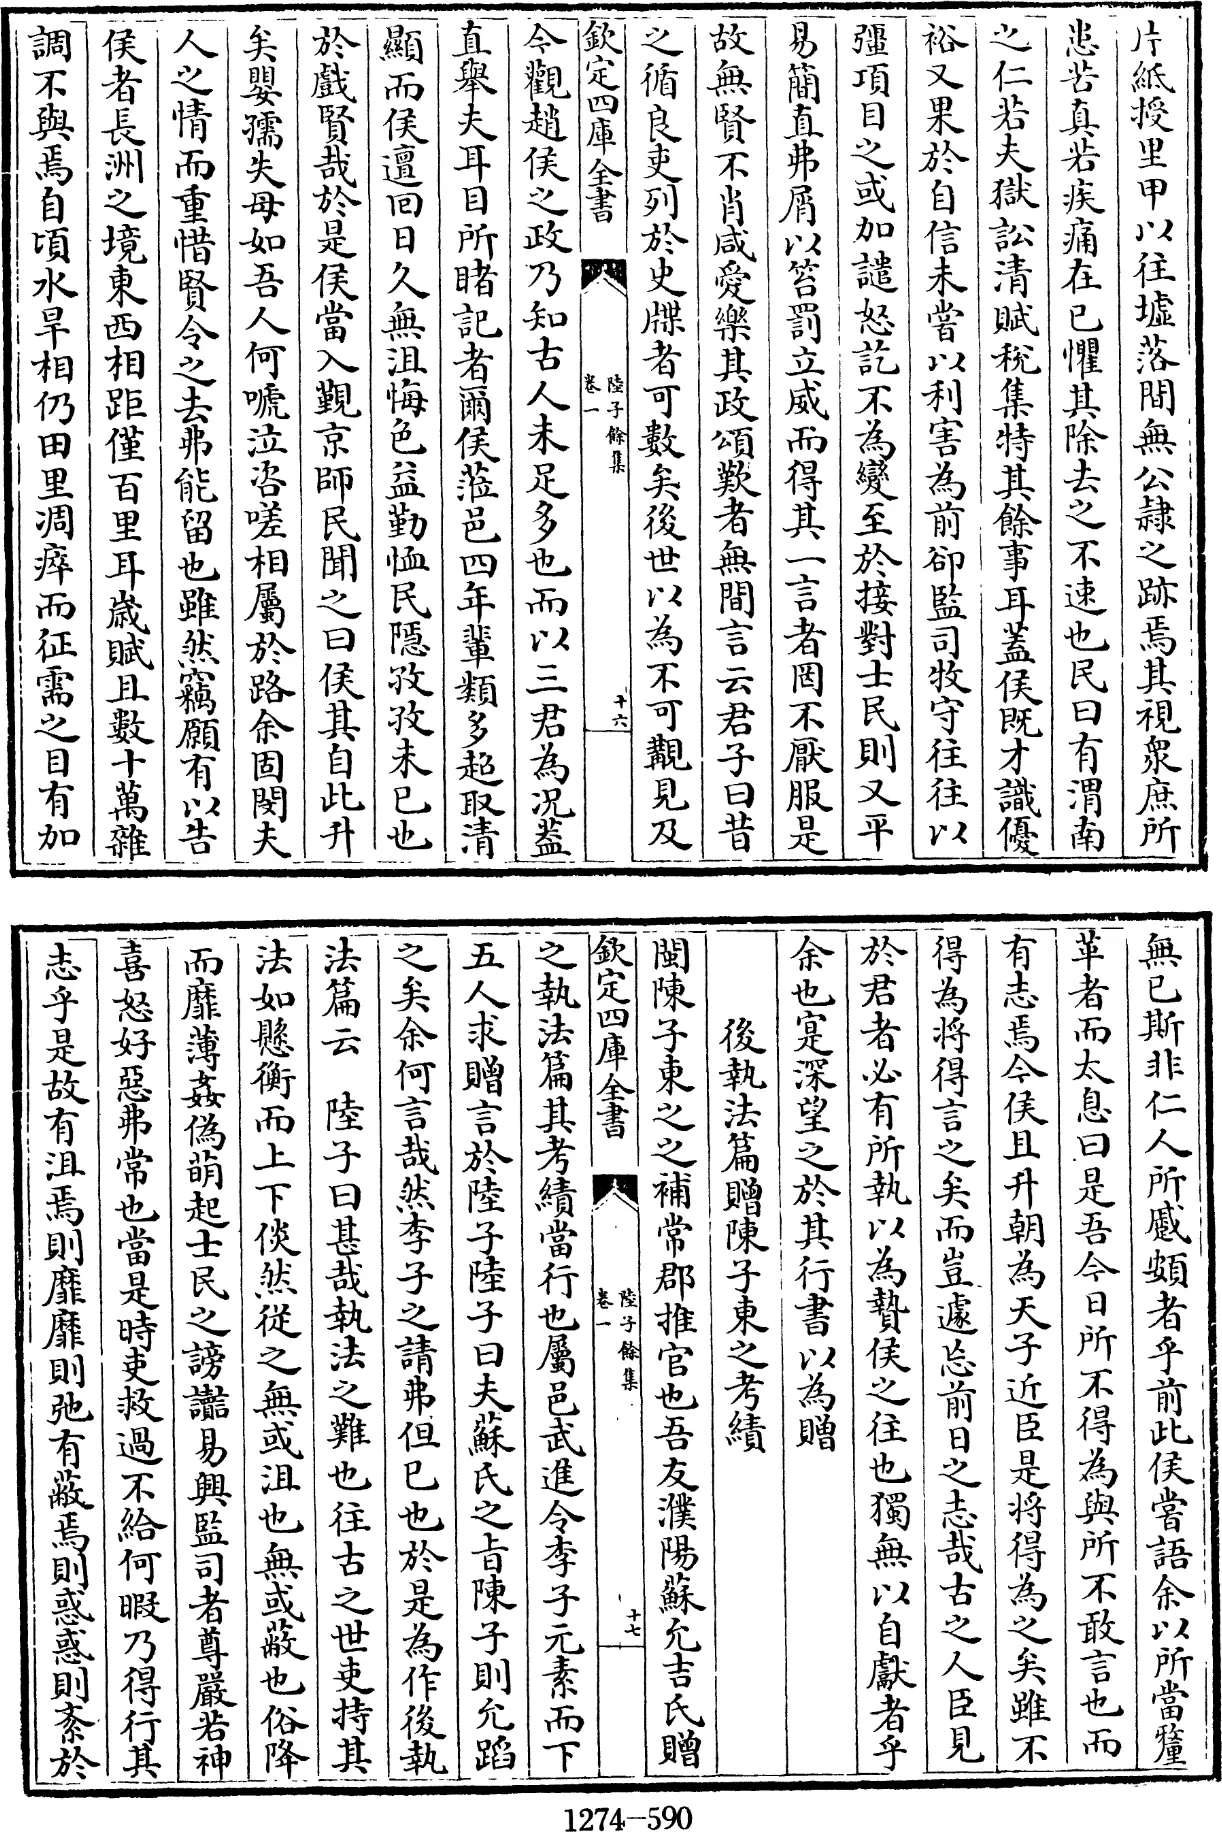 片紙授里甲以往墟落間無公隷之跡焉其視衆庶所
患苦真若疾痛在已懼其除去之不速也民曰有渭南
之仁若夫獄訟清賦稅集特其餘事耳蓋侯既才識優
裕又果於自信未嘗以利害為前卻監司牧守往往以
彊項目之或加譴怒訖不為變至於接對士民則又平
易簡直弗屑以笞罰立威而得其一言者罔不厭服是
故無賢不肖咸愛樂其政頌歎者無間言云君子曰昔
之循良吏列於史牒者可數矣後世以為不可覯見及
欽定四庫全書
陸子餘集
卷一
十六
今觀趙侯之政乃知古人未足多也而以三君為况蓋
直舉夫耳目所睹記者爾侯蒞邑四年輩類多超取清
顯而侯邅回日久無沮悔色益勤恤民隱孜孜未已也
於戲賢哉於是侯當入覲京師民聞之曰侯其自此升
矣嬰孺失母如吾人何嗁泣咨嗟相屬於路余固閔夫
人之情而重惜賢令之去弗能留也雖然竊願有以告
侯者長洲之境東西相距僅百里耳歲賦且數十萬雜
調不與焉自頃水旱相仍田里凋瘁而征需之目有加
無已斯非仁人所慼頞者乎前此侯嘗語余以所當釐
革者而太息曰是吾今日所不得為與所不敢言也而
有志焉今侯且升朝為天子近臣是將得為之矣雖不
得為將得言之矣而豈遽忘前日之志哉古之人臣見
於君者必有所執以為贄侯之往也獨無以自獻者乎
余也寔深望之於其行書以為贈
後執法篇贈陳子東之考績
閩陳子東之之補常郡推官也吾友濮陽蘇允吉氏贈
欽定四庫全書
陸子餘集
卷一
十七
之執法篇其考績當行也屬邑武進令李子元素而下
五人求贈言於陸子陸子曰夫蘇氏之旨陳子則允蹈
之矣余何言哉然李子之請弗但已也於是為作後執
法篇云 陸子曰甚哉執法之難也往古之世吏持其
法如懸衡而上下倓然從之無或沮也無或蔽也俗降
而靡薄姦偽萌起士民之謗讟易興監司者尊嚴若神
喜怒好惡弗常也當是時吏救過不給何暇乃得行其
志乎是故有沮焉則靡靡則弛有蔽焉則惑惑則紊於
1274-590